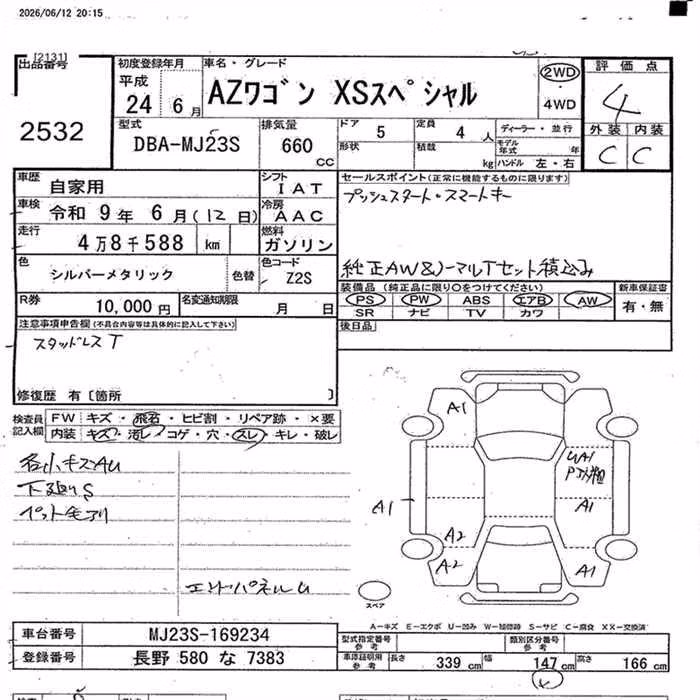 2026/06/12 20:15
[2131]
出品番号
2532
初度登録年月
平成
24 6月
車名・グレード
AZワゴン XSスペシャル
2WD
4WD
評価点
4
外装 内装
C C
型式
DBA-MJ23S
排気量
660
cc
ドア
5
定員
4 人
形状
積載
kg
ディーラー・並行
モデル年式 年
ハンドル 左・右
車歴
自家用
シフト
IAT
車検
令和 9年 6月(12日)
冷房
AAC
走行
4万8千588 km
燃料
ガソリン
色
シルバーメタリック
色替
色コード
Z2S
R券
10,000円
名変通知期限
月 日
セールスポイント(正常に機能するものに限ります)
プッシュスタート・スマートキー
純正AW&ノーマルTセット積込み
装備品 (純正品に限り○をつけてください)
PS PW ABS エアB AW
SR ナビ TV カワ
新車保証書
有・無
後日品
注意事項申告欄(不具合内容等は具体的に記入して下さい)
スタッドレスT
修復歴 有〔箇所 〕
検査員記入欄
FW キズ・飛石・ヒビ割・リペア跡・×要
内装 キズ・汚レ・コゲ・穴・スレ・キレ・破レ
各小キズAU
下廻りS
ペット毛アリ
エンドパネルU
A1
A1
A2
A2
UA1
A1
A1
スペア
A−キズ E−エクボ U−凹み W−補修跡 S−サビ C−腐食 XX−交換済
車台番号
MJ23S-169234
登録番号
長野 580 な 7383
型式指定番号
参考
類別区分番号
参考
車庫証明用
参考
長さ 339 cm 幅 147 cm 高さ 166 cm